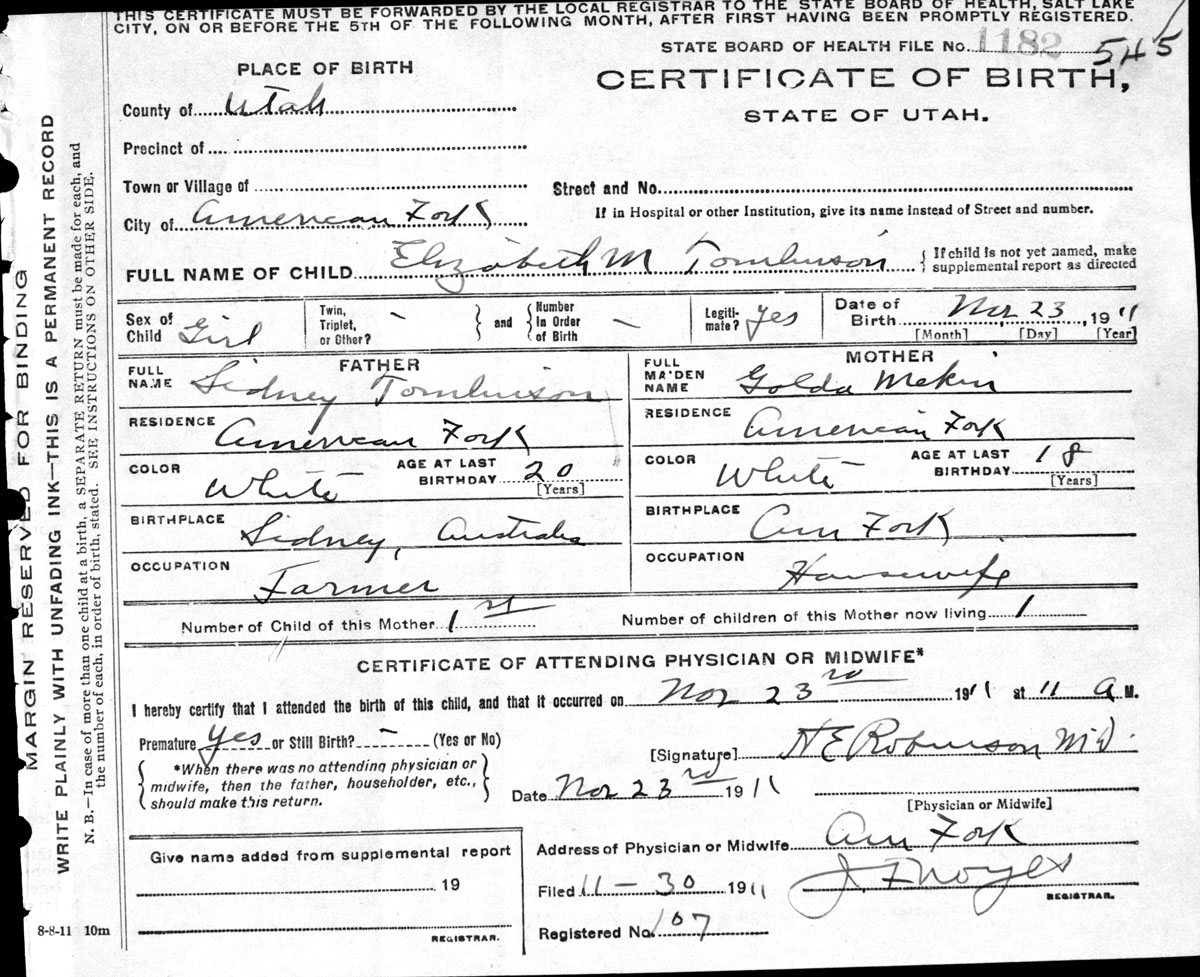 THIS CERTIFICATE MUST BE FORWARDED BY THE LOCAL REGISTRAR TO THE STATE BOARD OF HEALTH, SALT LAKE
CITY, ON OR BEFORE THE 5TH OF THE FOLLOWING MONTH, AFTER FIRST HAVING BEEN PROMPTLY REGISTERED.
STATE BOARD OF HEALTH FILE No. 1182 545
PLACE OF BIRTH
CERTIFICATE OF BIRTH,
STATE OF UTAH.
County of Utah
Precinct of
Town or Village of
Street and No.
City of American Fork
If in Hospital or other Institution, give its name instead of Street and number.
FULL NAME OF CHILD Elizabeth M Tomlinson { If child is not yet named, make
supplemental report as directed
Sex of Child Girl
Twin, Triplet, or Other? –
} and { Number In Order of Birth –
Legiti-mate? Yes
Date of Birth Nov 23, 1911
[Month] [Day] [Year]
FATHER
MOTHER
FULL NAME Sidney Tomlinson
FULL MA'DEN NAME Golda Mekin
RESIDENCE American Fork
RESIDENCE American Fork
COLOR White AGE AT LAST BIRTHDAY 20 [Years]
COLOR White AGE AT LAST BIRTHDAY 18 [Years]
BIRTHPLACE Sidney, Australia
BIRTHPLACE Am Fork
OCCUPATION Farmer
OCCUPATION Housewife
Number of Child of this Mother 1st
Number of children of this Mother now living 1
CERTIFICATE OF ATTENDING PHYSICIAN OR MIDWIFE*
I hereby certify that I attended the birth of this child, and that it occurred on Nov 23rd 1911 at 11 A M.
Premature Yes or Still Birth? – (Yes or No)
[Signature] N E Robinson M D
{ *When there was no attending physician or }
midwife, then the father, householder, etc.,
should make this return.
Date Nov 23rd 1911
[Physician or Midwife]
Give name added from supplemental report
19
REGISTRAR.
Address of Physician or Midwife Am Fork
Filed 11-30 1911
J F Noyes
REGISTRAR.
Registered No. 107
8-8-11 10m
MARGIN RESERVED FOR BINDING
WRITE PLAINLY WITH UNFADING INK—THIS IS A PERMANENT RECORD
N. B.—In case of more than one child at a birth, a SEPARATE RETURN must be made for each, and
the number of each, in order of birth, stated. SEE INSTRUCTIONS ON OTHER SIDE.